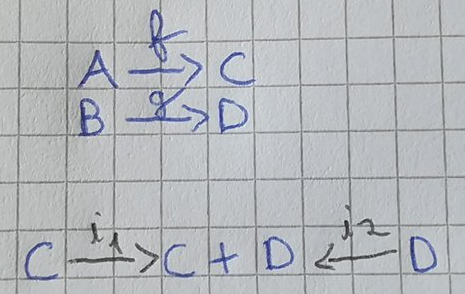 A f→ C
B g→ D
C i1→ C + D ←i2 D